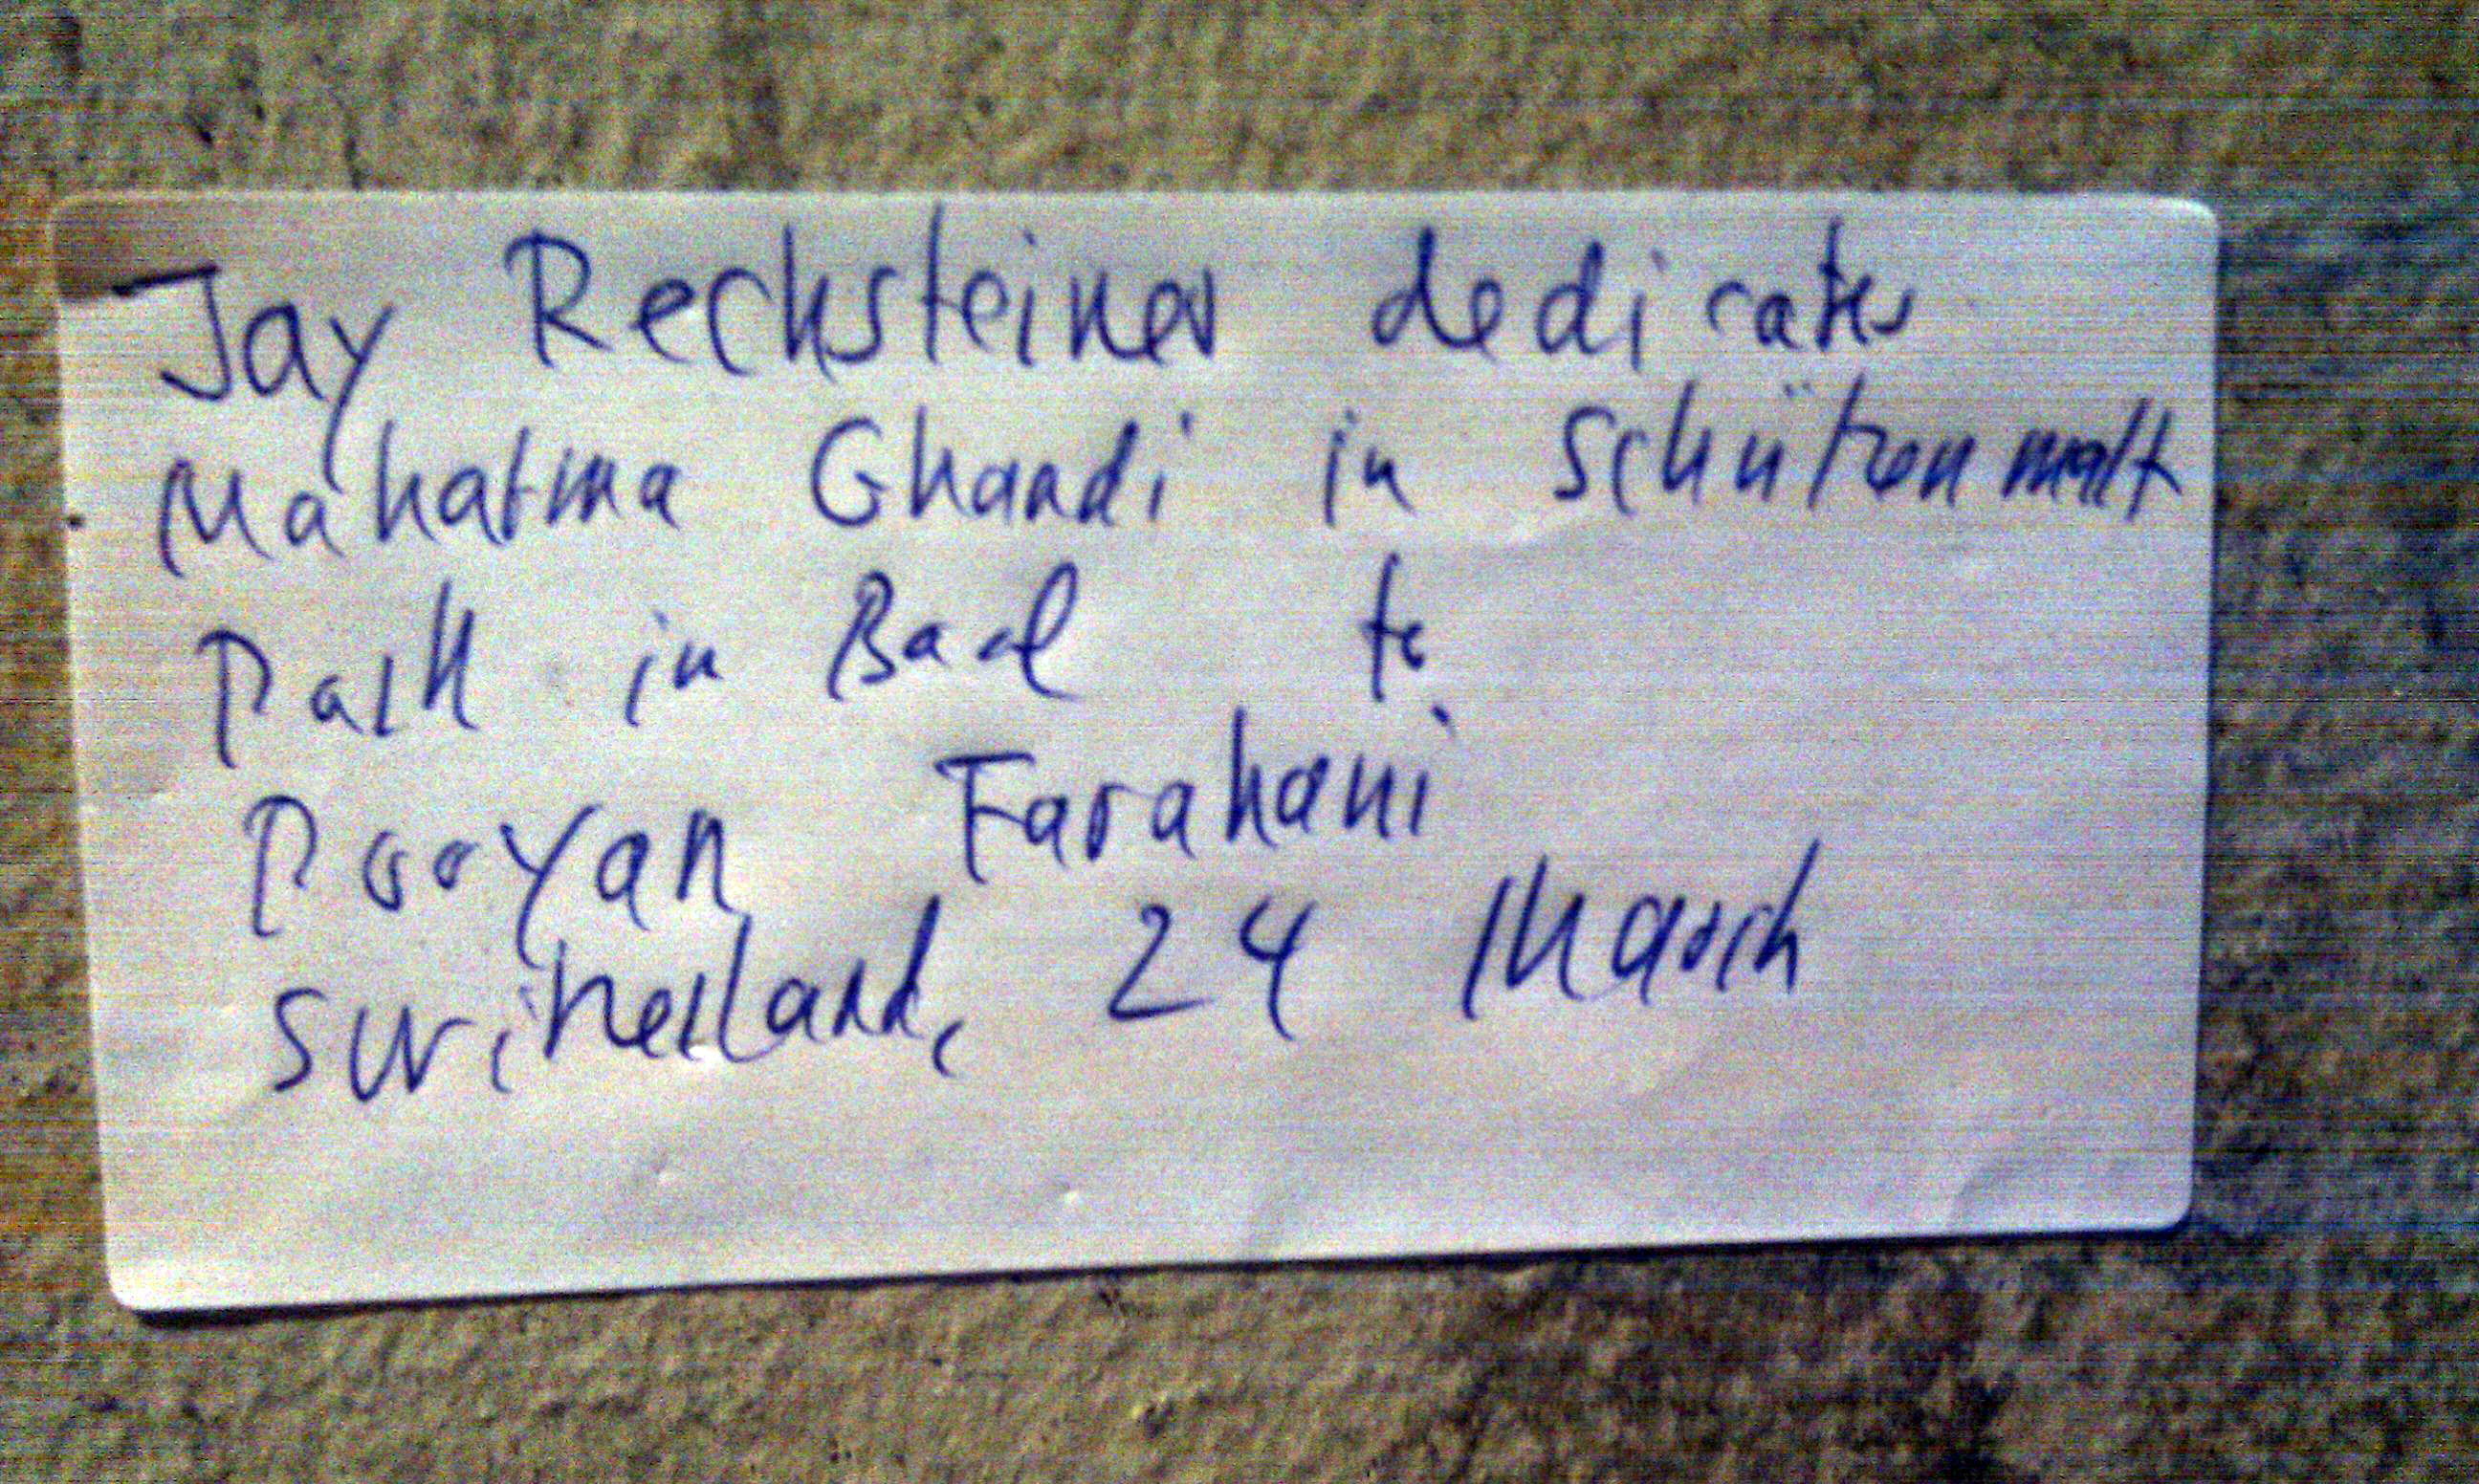 Jay Rechsteiner dedicates
Mahatma Ghandi in Schützenmatt
Park in Basel to
Pooyan Farahani
Switzerland, 24 March